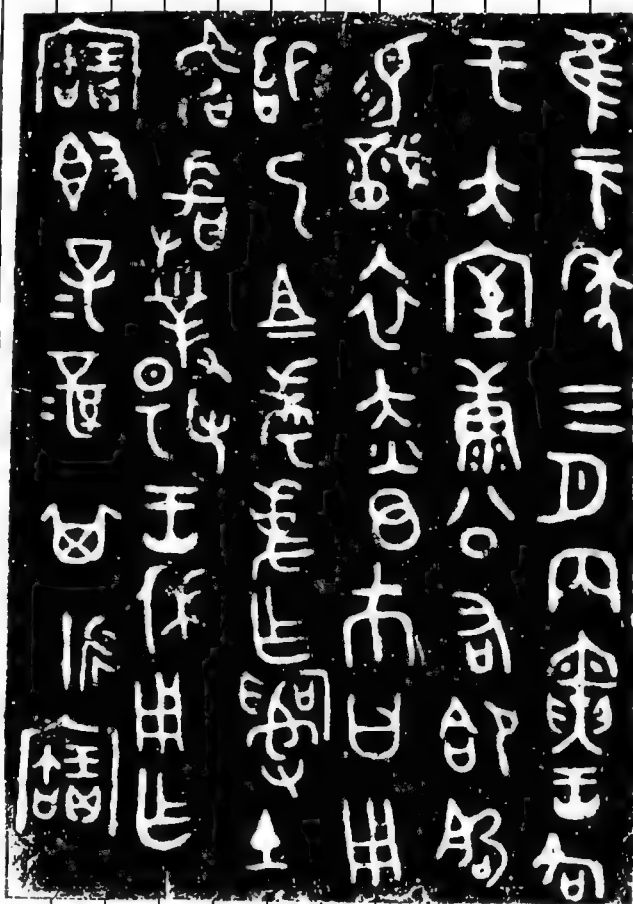 隹元年三月丙寅王各
于大室康公右郃曶
易戠衣赤⊙市曰用
嗣乃且考事乍𤔲土
曶敢對揚王休用乍
寶𣪘子=孫=其永寶